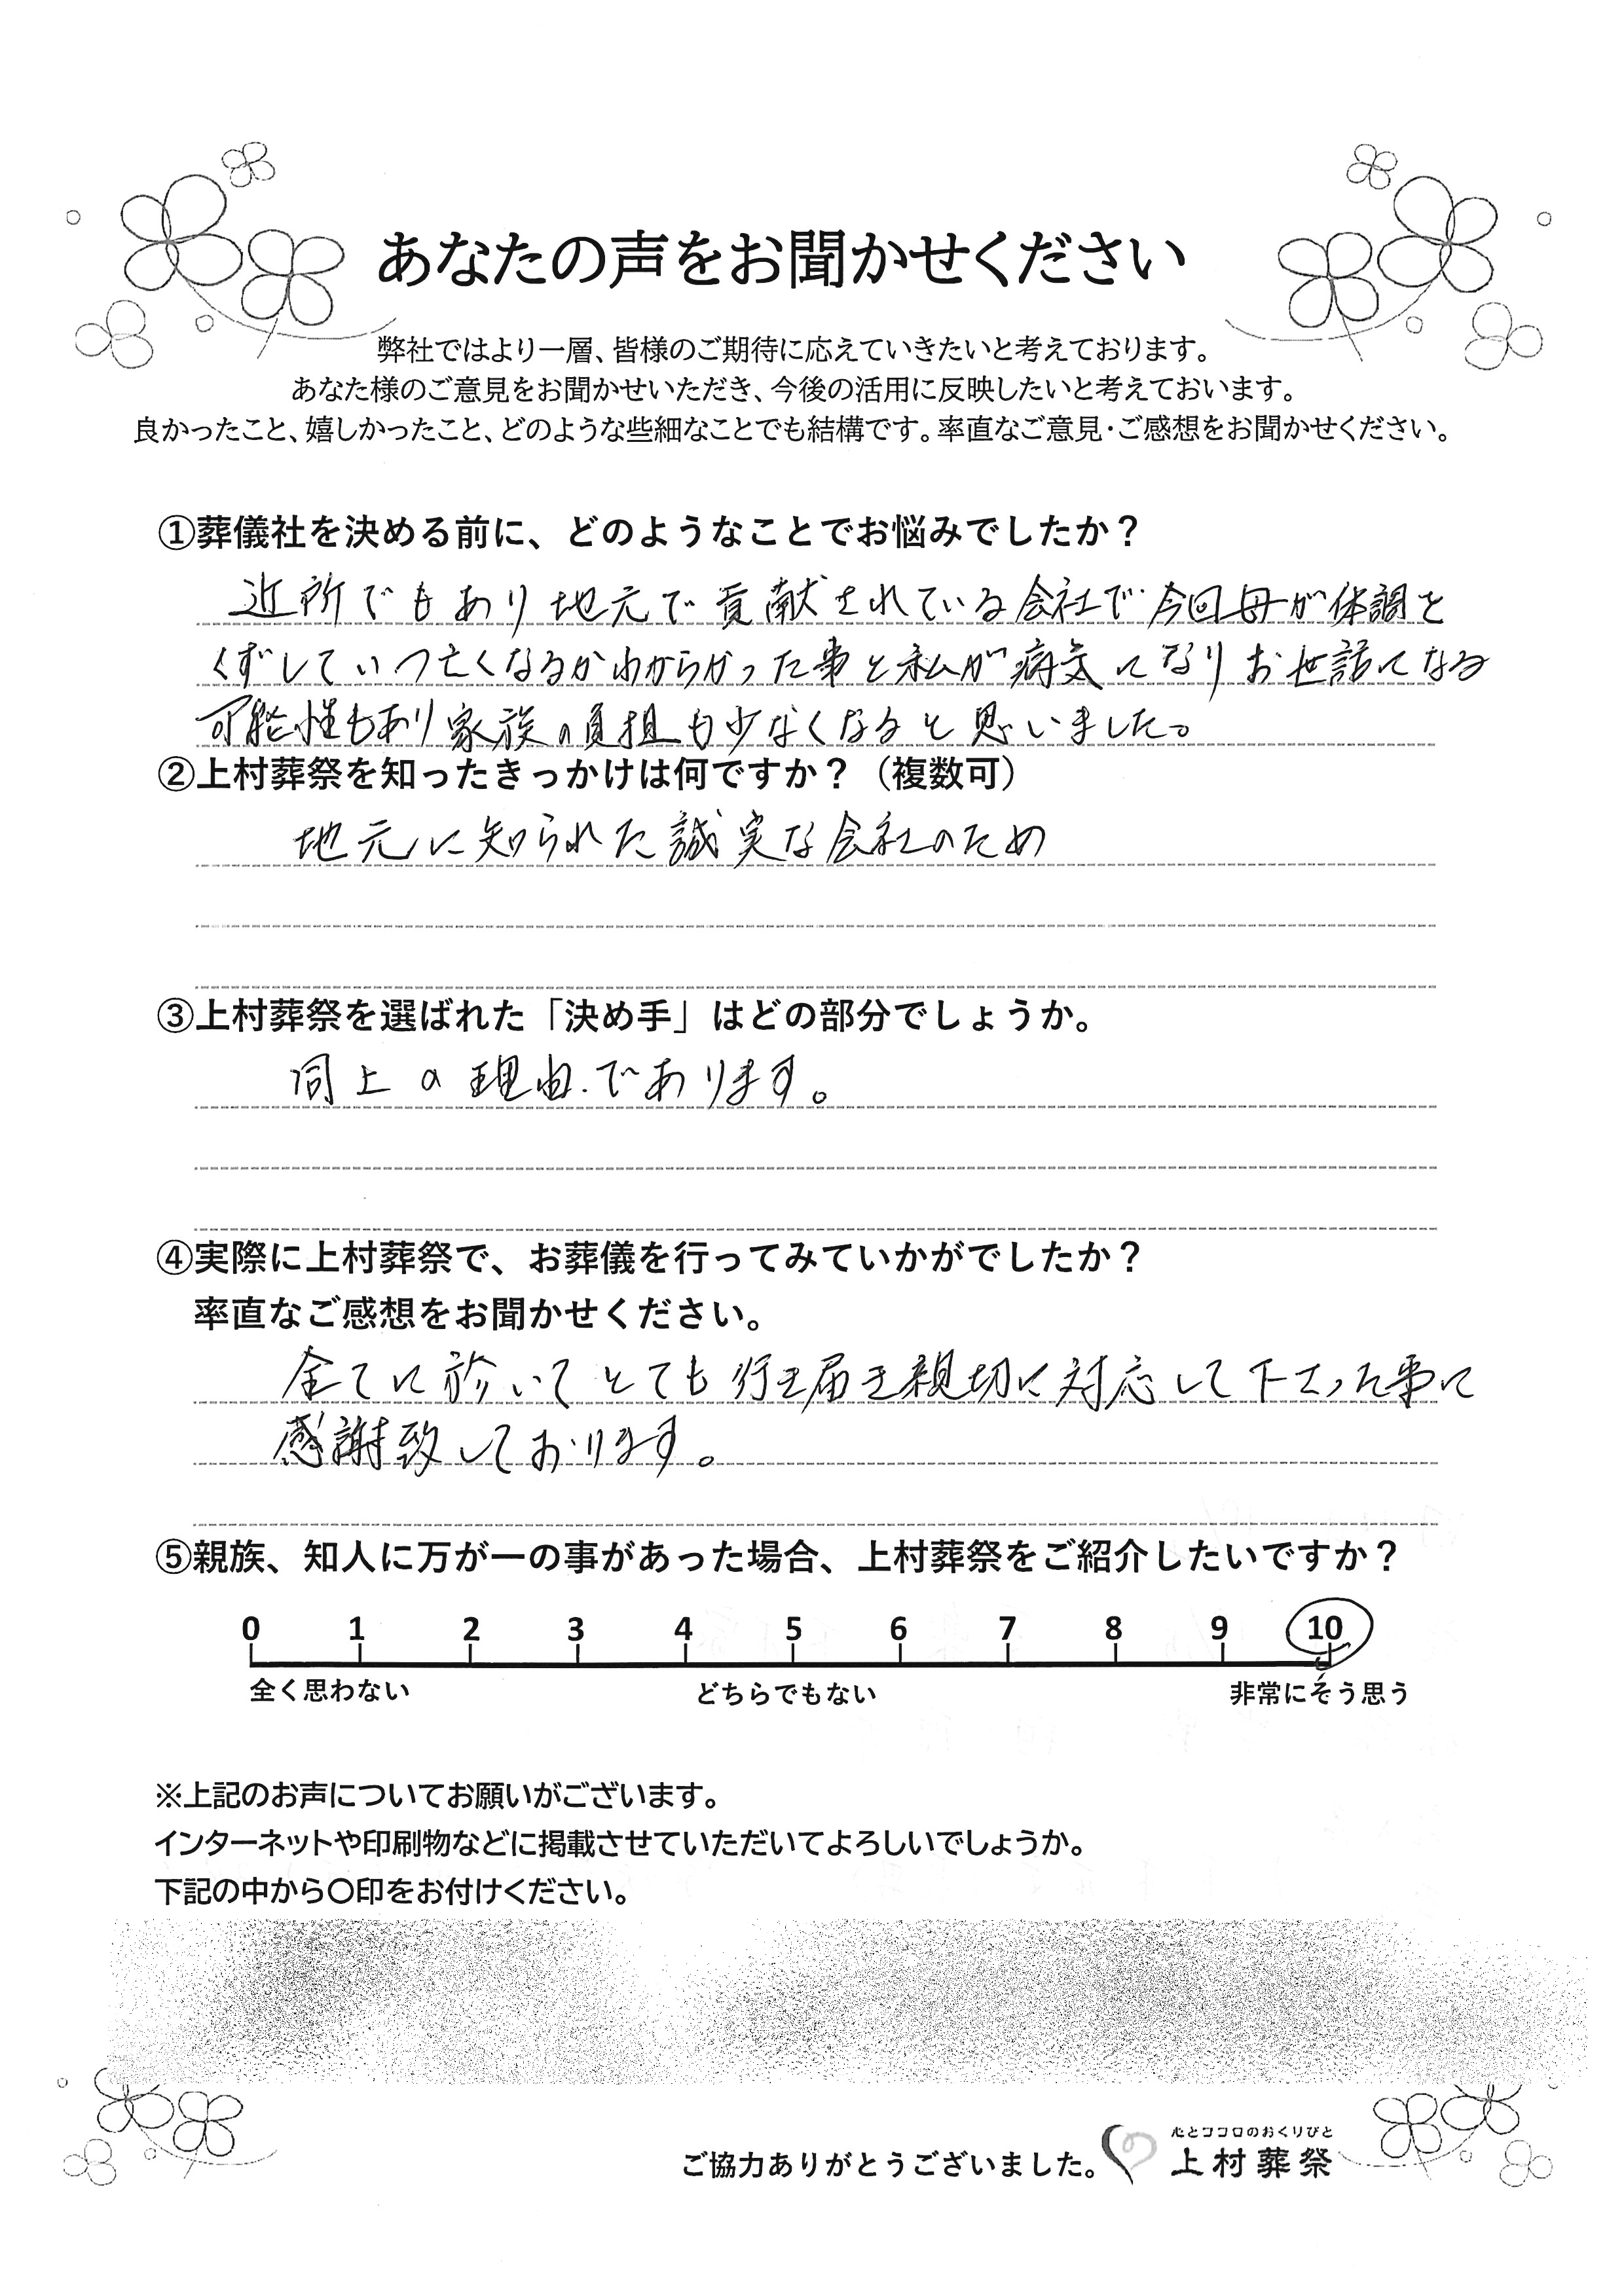 あなたの声をお聞かせください
弊社ではより一層、皆様のご期待に応えていきたいと考えております。
あなた様のご意見をお聞かせいただき、今後の活用に反映したいと考えておいます。
良かったこと、嬉しかったこと、どのような些細なことでも結構です。率直なご意見・ご感想をお聞かせください。
①葬儀社を決める前に、どのようなことでお悩みでしたか？
近所でもあり地元で貢献されている会社で今回母が体調を
くずしていつ亡くなるかわからかった事と私が病気になりお世話になる
可能性もあり家族の負担も少なくなると思いました。
②上村葬祭を知ったきっかけは何ですか？（複数可）
地元に知られた誠実な会社のため
③上村葬祭を選ばれた「決め手」はどの部分でしょうか。
同上の理由であります。
④実際に上村葬祭で、お葬儀を行ってみていかがでしたか？
率直なご感想をお聞かせください。
全てに於いてとても行き届き親切に対応して下さった事に
感謝致しております。
⑤親族、知人に万が一の事があった場合、上村葬祭をご紹介したいですか？
0 1 2 3 4 5 6 7 8 9 10
全く思わない どちらでもない 非常にそう思う
※上記のお声についてお願いがございます。
インターネットや印刷物などに掲載させていただいてよろしいでしょうか。
下記の中から〇印をお付けください。
心とココロのおくりびと
ご協力ありがとうございました。 上村葬祭